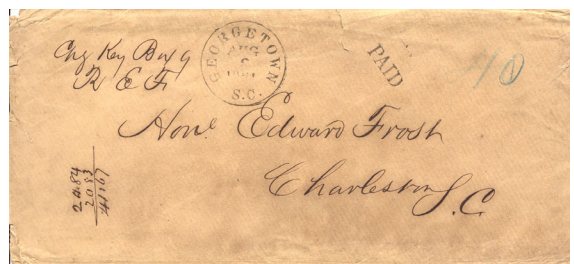 Chg Key Box 9
R E F
GEORGETOWN
AUG
S.C.
PAID
10
Hone Edward Frost
Charleston S.C.
2484
2083
4167